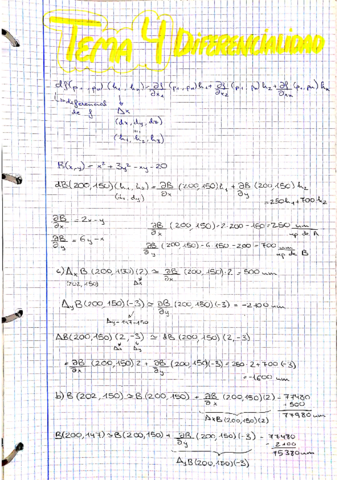 TEMA 4 DIFERENCIALIDAD
df(p₁...,pₙ)(h₁...hₙ) = ∂f/∂x₁ (p₁...pₙ)h₁ + ∂f/∂x₂ (p₁...pₙ)h₂ + ∂f/∂xₙ (p₁...pₙ)hₙ
de f
Δx
(dx, dy, dz)
(h₁, h₂, h₃)
B(x,y) = x² + 3y² - xy - 20
dB(200,150)(h₁,h₂) = ∂B/∂x (200,150)h₁ + ∂B/∂y (200,150)h₂
(dx,dy)
= 250h₁ + 700h₂
∂B/∂x = 2x - y
∂B/∂x (200,150) = 2·200 - 150 = 250 um/up de A
∂B/∂y = 6y - x
∂B/∂y (200,150) = 6·150 - 200 = 700 um/up de B
a) ΔₓB(200,150)(2) ≃ ∂B/∂x (200,150)·2 = 500 um
(202,150)
Δx
Δ_yB(200,150)(-3) ≃ ∂B/∂y (200,150)(-3) = -2100 um
Δy = 147-150
ΔB(200,150)(2,-3) ≃ dB(200,150)(2,-3)
Δx Δy
= ∂B/∂x (200,150)·2 + ∂B/∂y (200,150)(-3) = 250·2 + 700(-3)
= -1600 um
b) B(202,150) ≃ B(200,150) + ∂B/∂x (200,150)(2) = 77480
+ 500
77980 um
ΔₓB(200,150)(2)
B(200,147) ≃ B(200,150) + ∂B/∂y (200,150)(-3) = 77480
- 2100
75380 um
Δ_yB(200,150)(-3)